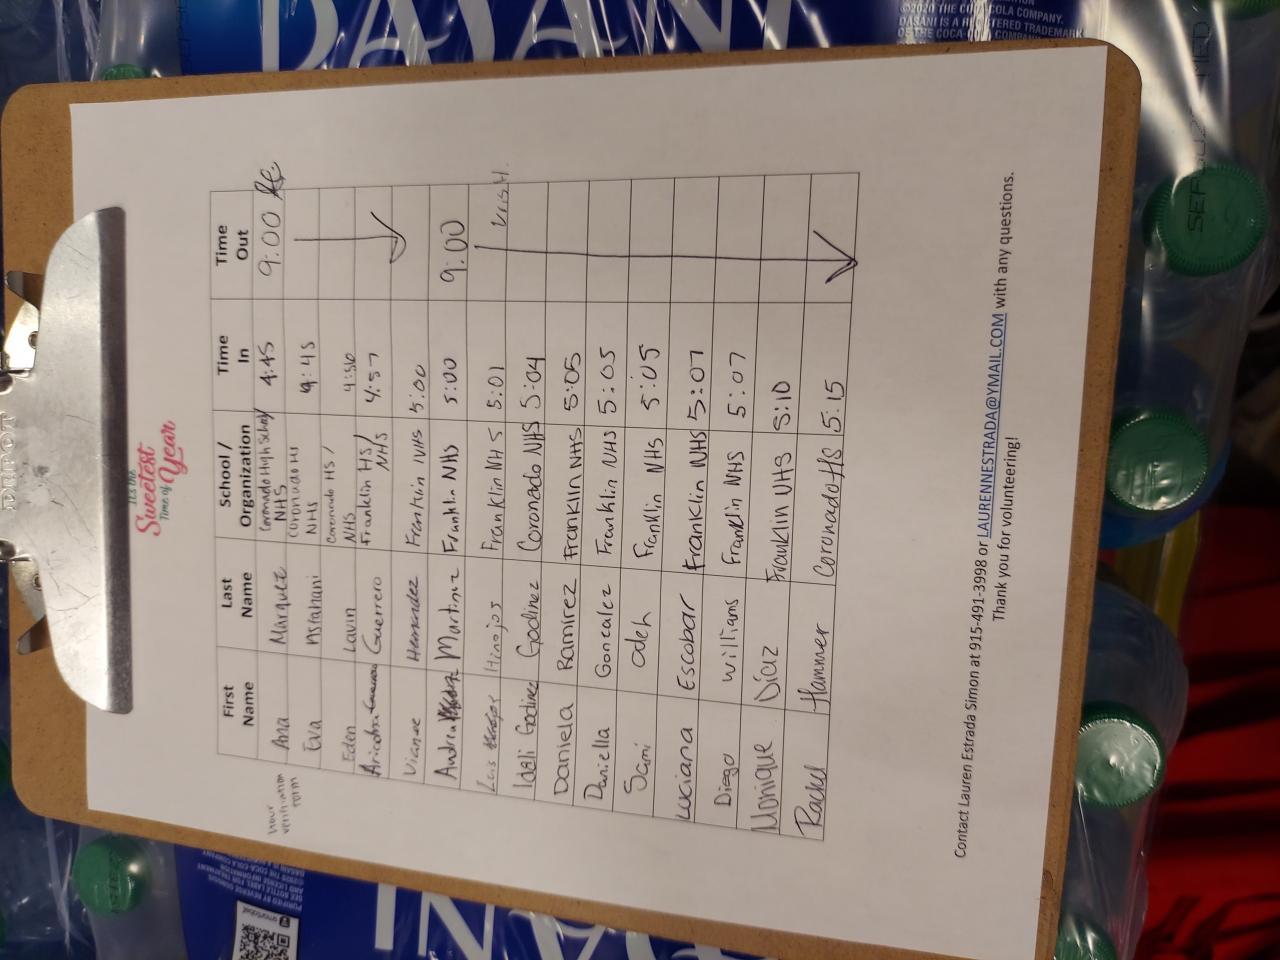 It's the
Sweetest
Time of Year
First Name Last Name School / Organization Time In Time Out
hour verification form
Ana Marquez Coronado High School NHS 4:45 9:00
Eva Coronado HS NHS 4:45
Eden Lavin Coronado HS / NHS 4:56
Guerrero Franklin HS / NHS 4:57
Vianae Hernandez Franklin NHS 5:00
Andrea Martinez Franklin NHS 5:00 9:00
Luis Hinojos Franklin NHS 5:01
Idali Godinez Godinez Coronado NHS 5:04
Daniela Ramirez Franklin NHS 5:05
Daniella Gonzalez Franklin NHS 5:05
Sami Odeh Franklin NHS 5:05
Luciana Escobar Franklin NHS 5:07
Diego Williams Franklin NHS 5:07
Monique Diaz Franklin NHS 5:10
Rachel Hammer Coronado HS 5:15
Contact Lauren Estrada Simon at 915-491-3998 or LAURENNESTRADA@YMAIL.COM with any questions.
Thank you for volunteering!
DASANI
©2020 THE COCA-COLA COMPANY.
DASANI IS A REGISTERED TRADEMARK
OF THE COCA-COLA COMPANY
DEPOT